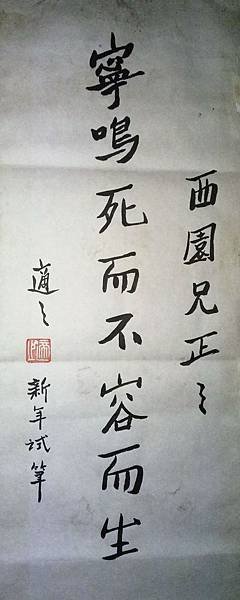 西園兄正之
寧鳴死而不容而生
適之
新年試筆